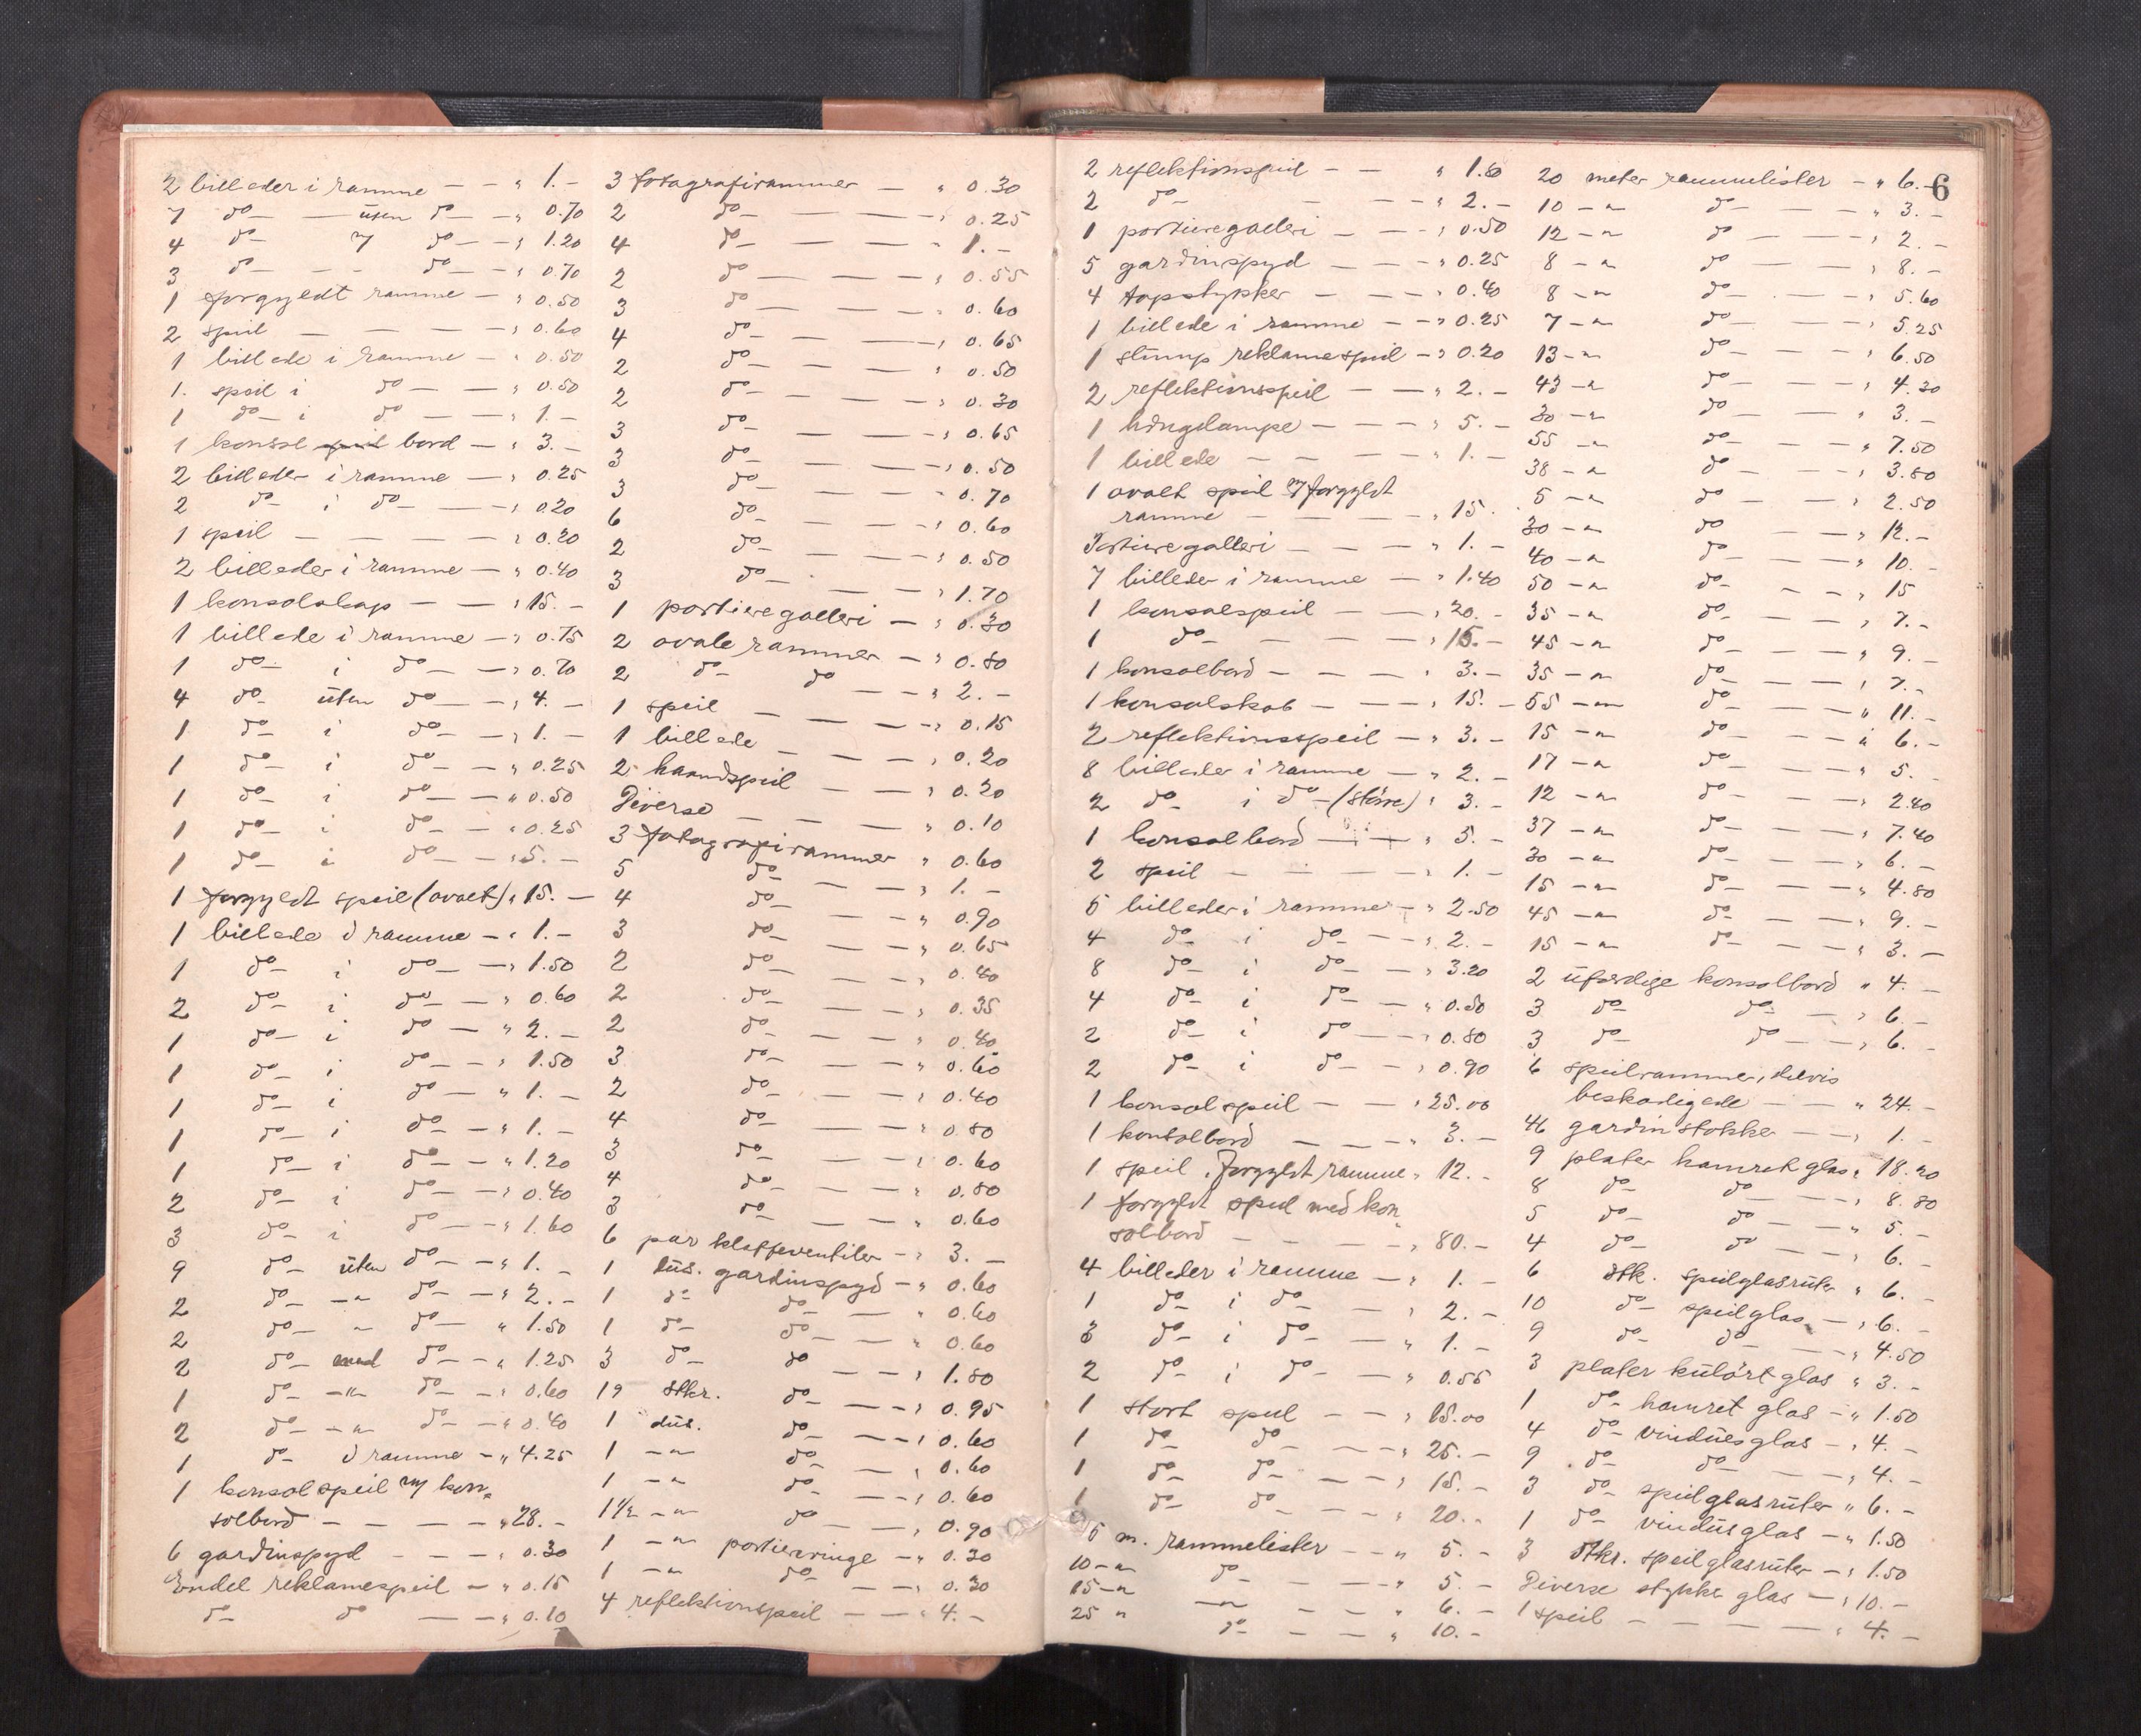 2 billeder i ramme — — „ 1.-
7 do — uten do — „ 0.70
4 do m/ do — „ 1.20
3 do - - do — „ 0.70
1 forgyldt ramme — „ 0.50
2 speil — — — — „ 0.60
1 billede i ramme — „ 0.50
1. speil i do — — „ 0.50
1 do i do — — „ 1.-
1 konsol bord — „ 3.-
2 billeder i ramme — „ 0.25
2 do i do — — „ 0.20
1 speil — — — — „ 0.20
2 billeder i ramme — „ 0.40
1 konsolskap — — „ 15.-
1 billede i ramme — „ 0.75
1 do i do — — „ 0.70
4 do uten do — — „ 4.-
1 do i do — — „ 1.-
1 do i do — — „ 0.25
1 do i do — — „ 0.50
1 do i do — — „ 0.25
1 do i do — — „ 5.-
1 forgyldt speil (ovalt) „ 15.—
1 billede i ramme — „ 1.-
1 do i do — „ 1.50
2 do i do — „ 0.60
1 do i do — „ 2.-
1 do i do — „ 1.50
1 do i do — „ 1.-
1 do i do — „ 1.-
1 do i do — „ 1.20
2 do i do — „ 0.40
3 do i do — „ 1.60
9 do uten do — „ 1.-
2 do -„- do — „ 2.-
2 do „ do — „ 1.50
2 do med do — „ 1.25
1 do -„- do — „ 0.60
2 do -„- do — „ 0.40
1 do i ramme — „ 4.25
1 konsolspeil m/ kon-
solbord — — — — „ 28.-
6 gardinspyd — — — „ 0.30
Endel reklamespeil — „ 0.15
do do — — „ 0.10
3 fotografirammer — „ 0.30
2 do — — — „ 0.25
4 do — — — „ 1.-
2 do — — — „ 0.55
3 do — — — „ 0.60
4 do — — — „ 0.65
2 do — — — „ 0.50
2 do — — — „ 0.30
3 do — — — „ 0.65
3 do — — — „ 0.50
3 do — — — „ 0.70
6 do — — — „ 0.60
2 do — — — „ 0.50
3 do — — — „ 1.70
1 portieregalleri — „ 0.30
2 ovale rammer — „ 0.80
2 do do — — „ 2.-
1 speil — — — — „ 0.15
1 billede — — — „ 0.20
2 haandspeil — — „ 0.20
Diverse — — — „ 0.10
3 fotografirammer „ 0.60
5 do — — „ 1.-
4 do — — „ 0.90
3 do — — „ 0.65
2 do — — „ 0.40
2 do — — „ 0.35
2 do — — „ 0.40
3 do — — „ 0.60
2 do — — „ 0.40
4 do — — „ 0.80
3 do — — „ 0.60
4 do — — „ 0.80
3 do — — „ 0.60
6 par klaffeventiler — „ 3.-
1 dus. gardinspyd — „ 0.60
1 do do — „ 0.60
1 do do — „ 0.60
3 do do — — „ 1.80
19 stkr. do — — „ 0.95
1 dus. do — — „ 0.60
1 -„- do — „ 0.60
1 -„- do — — „ 0.60
1½ -„- do — — „ 0.90
1 -„- portierringe — „ 0.30
1 -„- do — — „ 0.30
4 reflektionspeil — — „ 4.-
6
2 reflektionspeil — — „ 1.80
2 do — — — „ 2.-
1 portieregalleri — — „ 0.50
5 gardinspyd — — — „ 0.25
4 tapstykker — — — „ 0.40
1 billede i ramme — — „ 0.25
1 stump reklamespeil — „ 0.20
2 reflektionsspeil — — „ 2.-
1 hængelampe — — — „ 5.-
1 billede — — — — „ 1.-
1 ovalt speil m/ forgyldt
ramme — — — — „ 15.
Portieregalleri — — — „ 1.-
7 billeder i ramme — „ 1.40
1 konsolspeil — — „ 20.-
1 do — — — — „ 15.-
1 konsolbord — — — „ 3.-
1 konsolskab — — — „ 15.-
2 reflektionsspeil — „ 3.-
8 billeder i ramme — „ 2.-
2 do i do (større) „ 3.-
1 konsolbord — — „ 3.-
2 speil — — — — „ 1.-
5 billeder i rammer — „ 2.50
4 do i do — — „ 2.-
8 do i do — „ 3.20
4 do i do — „ 0.50
2 do i do — — „ 0.80
2 do i do — „ 0.90
1 konsolspeil — — „ 25.00
1 konsolbord — — — „ 3.-
1 speil, forgyldt ramme „ 12.-
1 forgyldt speil med kon-
solbord — — — — „ 80.-
4 billeder i ramme — „ 1.-
1 do i do — „ 2.-
3 do i do — „ 1.-
2 do i do — „ 0.55
1 stort speil — — „ 15.00
1 do do — — „ 25.-
1 do do — — „ 15.-
1 do do — — „ 20.-
5 m. rammelister — — „ 5.-
10 -„- do — — — „ 5.-
15 -„- -„- — — „ 6.-
25 „ do — — „ 10.-
20 meter rammelister — „ 6.-
10 -„- do — — „ 3.-
12 -„- do — — „ 2.-
8 -„- do — — „ 8.-
8 -„- do — — „ 5.60
7 -„- do — — „ 5.25
13 -„- do — — „ 6.50
43 -„- do — — „ 4.30
30 -„- do — — „ 3.-
55 -„- do — — „ 7.50
38 -„- do — — „ 3.80
5 -„- do — — „ 2.50
30 -„- do — — „ 12.-
40 -„- do — — „ 10.-
50 -„- do — — „ 15
35 -„- do — — „ 7.-
45 -„- do — — „ 9.-
35 -„- do — — „ 7.-
55 -„- do — — „ 11.-
15 -„- do — — „ 6.-
17 -„- do — — „ 5.-
12 -„- do — — „ 2.40
37 -„- do — — „ 7.40
30 -„- do — — „ 6.-
15 -„- do — — „ 4.80
45 -„- do — — „ 9.-
15 -„- do — — „ 3.-
2 uferdige konsolbord „ 4.-
3 do do — „ 6.-
3 do do — „ 6.-
6 speilrammer, delvis
beskadigede — — „ 24.-
46 gardinstokke — — „ 1.-
9 plater hamret glas „ 18.20
8 do do — — „ 8.80
5 do do — — „ 5.-
4 do do — — „ 6.-
6 stk. speilglasruter „ 6.-
10 do speilglas — „ 6.-
9 do do — — „ 4.50
3 plater kulørt glas „ 3.-
1 do hamret glas — „ 1.50
4 do vinduesglas — „ 4.-
9 do do — — „ 4.-
3 do speilglasruter „ 6.-
1 do vindusglas — „ 1.50
3 stkr. speilglasruter — „ 1.50
Diverse stykke glas — „ 10.-
1 speil — — — — „ 4.-